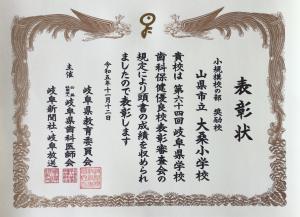 表彰状
小規模校の部 奨励校
山県市立 大桑小学校
貴校は 第六十四回岐阜県学校
歯科保健優良校表彰審査会の
規定により頭書の成績を収められ
ましたので表彰します
令和五年十一月十二日
主催
岐阜県教育委員会
公益社団法人 岐阜県歯科医師会
岐阜新聞社・岐阜放送